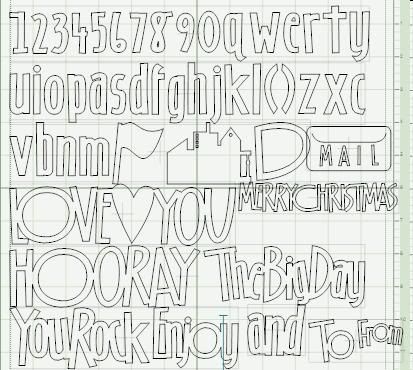 1234567890qwerty
uiopasdfghjkl()zxc
vbnm MAIL
LOVE♥YOU MERRY CHRISTMAS
HOORAY The Big Day
You Rock Enjoy and To From